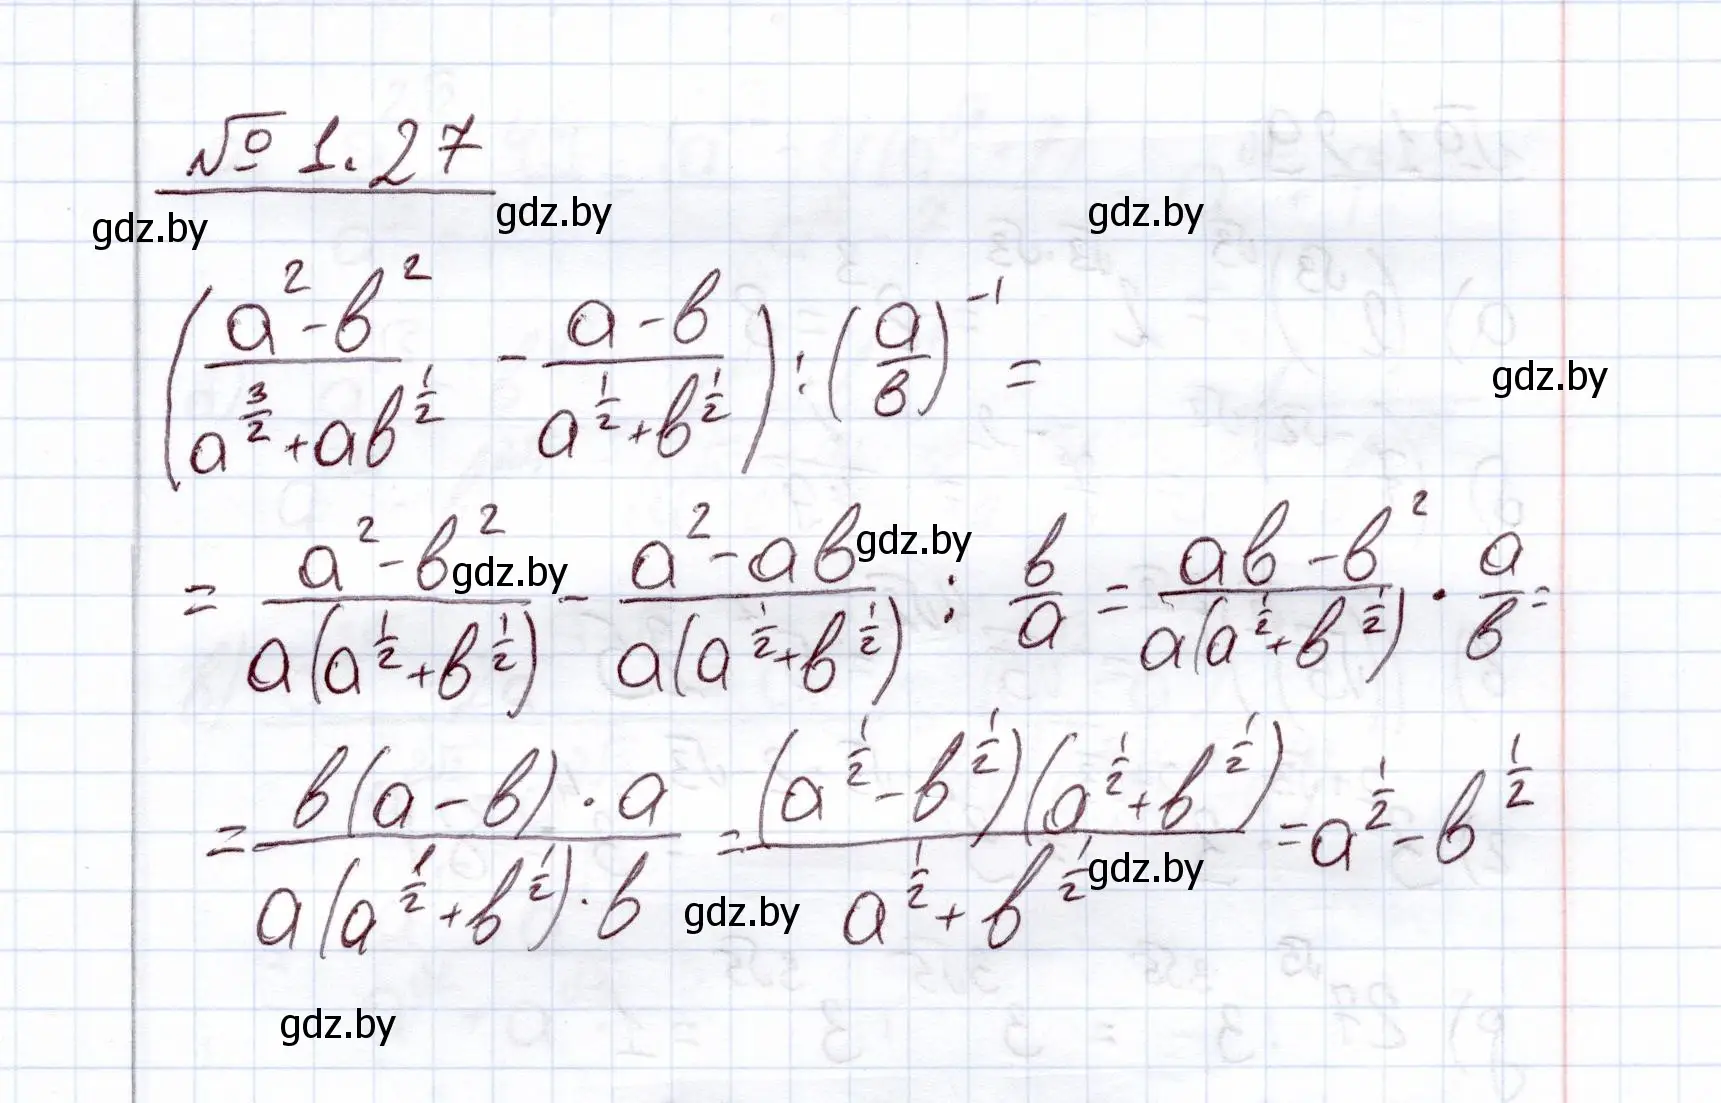 № 1.27
gdz.by gdz.by gdz.by
(a² - b² / a^(3/2) + ab^(1/2) - a - b / a^(1/2) + b^(1/2)) : (a/b)⁻¹ =
gdz.by
= a² - b² / a(a^(1/2) + b^(1/2)) - a² - ab / a(a^(1/2) + b^(1/2)) : b/a = ab - b² / a(a^(1/2) + b^(1/2)) · a/b =
gdz.by gdz.by
= b(a - b) · a / a(a^(1/2) + b^(1/2)) · b = (a^(1/2) - b^(1/2))(a^(1/2) + b^(1/2)) / a^(1/2) + b^(1/2) = a^(1/2) - b^(1/2)
gdz.by gdz.by
gdz.by